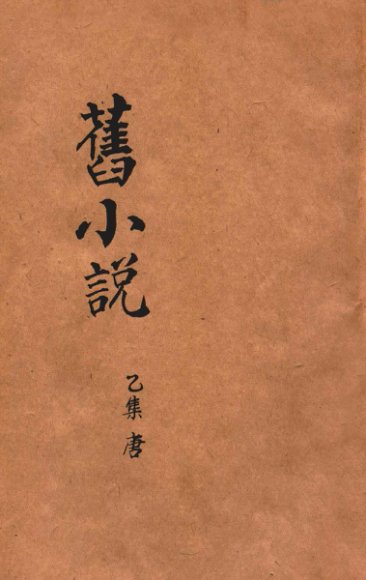 舊小說
乙集 唐